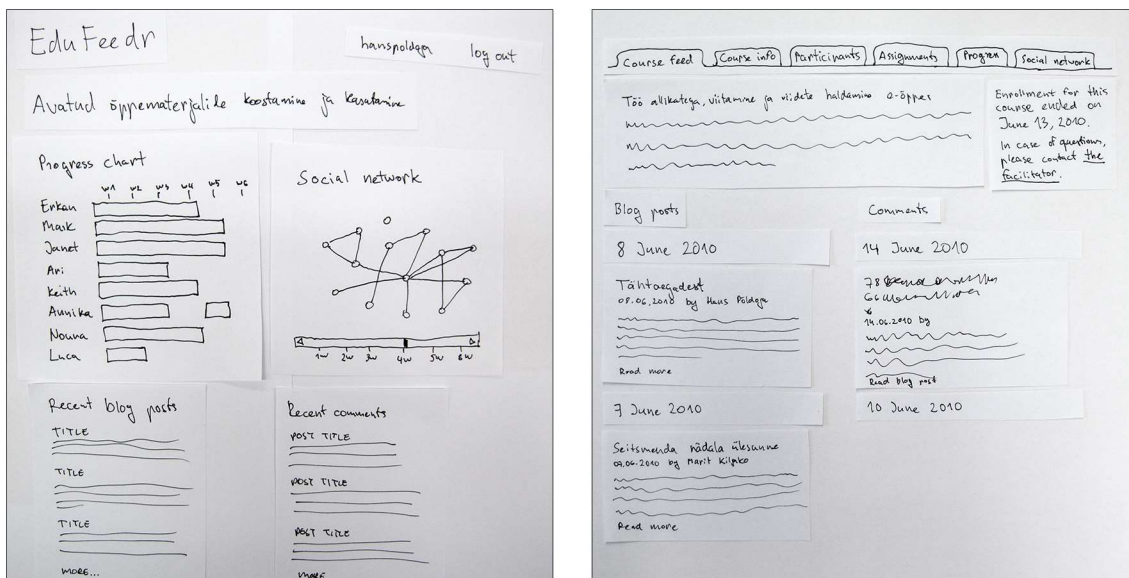 EduFeedr
hanspoldoja log out
Avatud õppematerjalide koostamine ja kasutamine
Progress chart
w1 w2 w3 w4 w5 w6
Erkan
Mark
Janet
Ari
Keith
Annika
Nouna
Luca
Social network
1w 2w 3w 4w 5w 6w
Recent blog posts
TITLE
TITLE
TITLE
MORE...
Recent comments
POST TITLE
POST TITLE
POST TITLE
MORE
Course feed Course info Participants Assignments Progress Social network
Töö allikatega, viitamine ja viidete haldamine e-õppes
Enrollment for this
course ended on
June 13, 2010.
In case of questions,
please contact the
facilitator.
Blog posts
8 June 2010
Tähtaegadest
08.06.2010 by Hans Põldoja
Read more
7 June 2010
Seitsmenda nädala ülesanne
07.06.2010 by Marit
Read more
Comments
14 June 2010
14.06.2010 by
Read blog post
10 June 2010